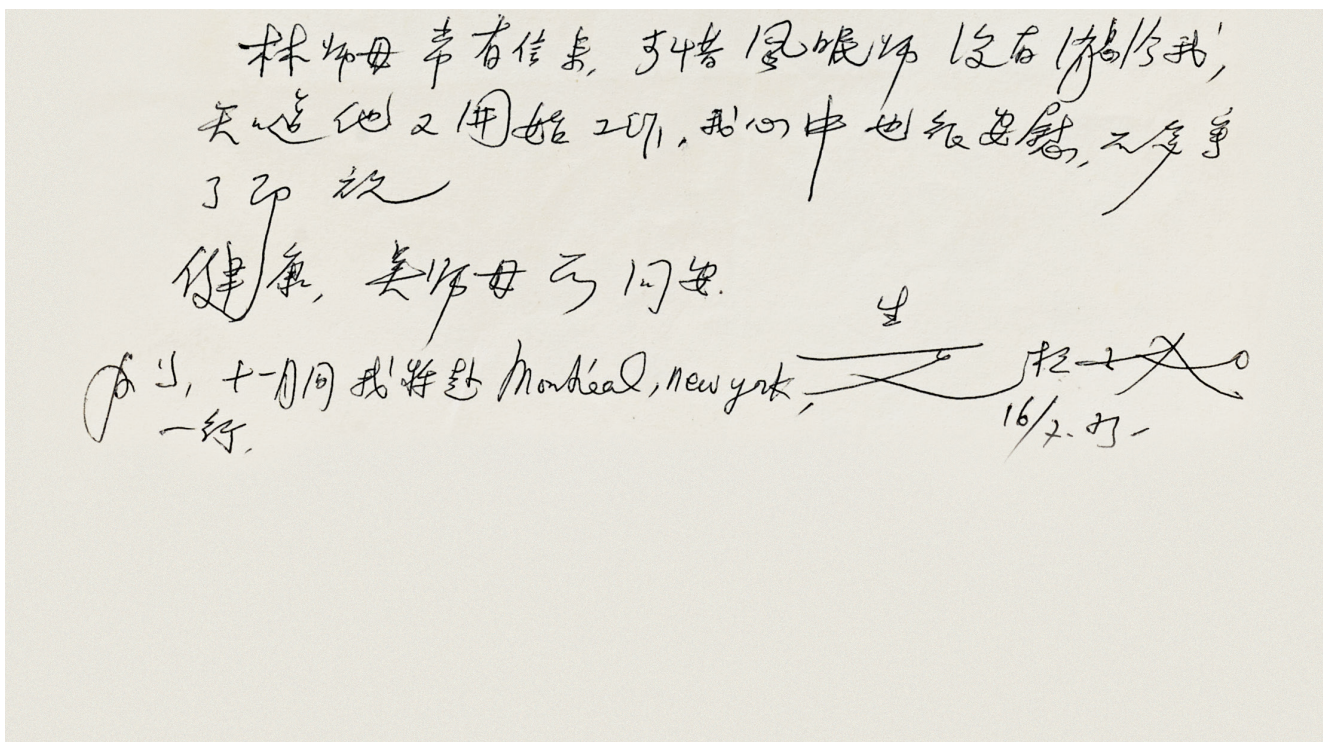 林师母常有信来,可惜风眠师没有片纸给我,
知道他又开始工作,我心中也很安慰,不多事
了即祝
健康,吴师母 问安.
生
十一月间我将赴 Montréal, new york,
一行.
16/7.